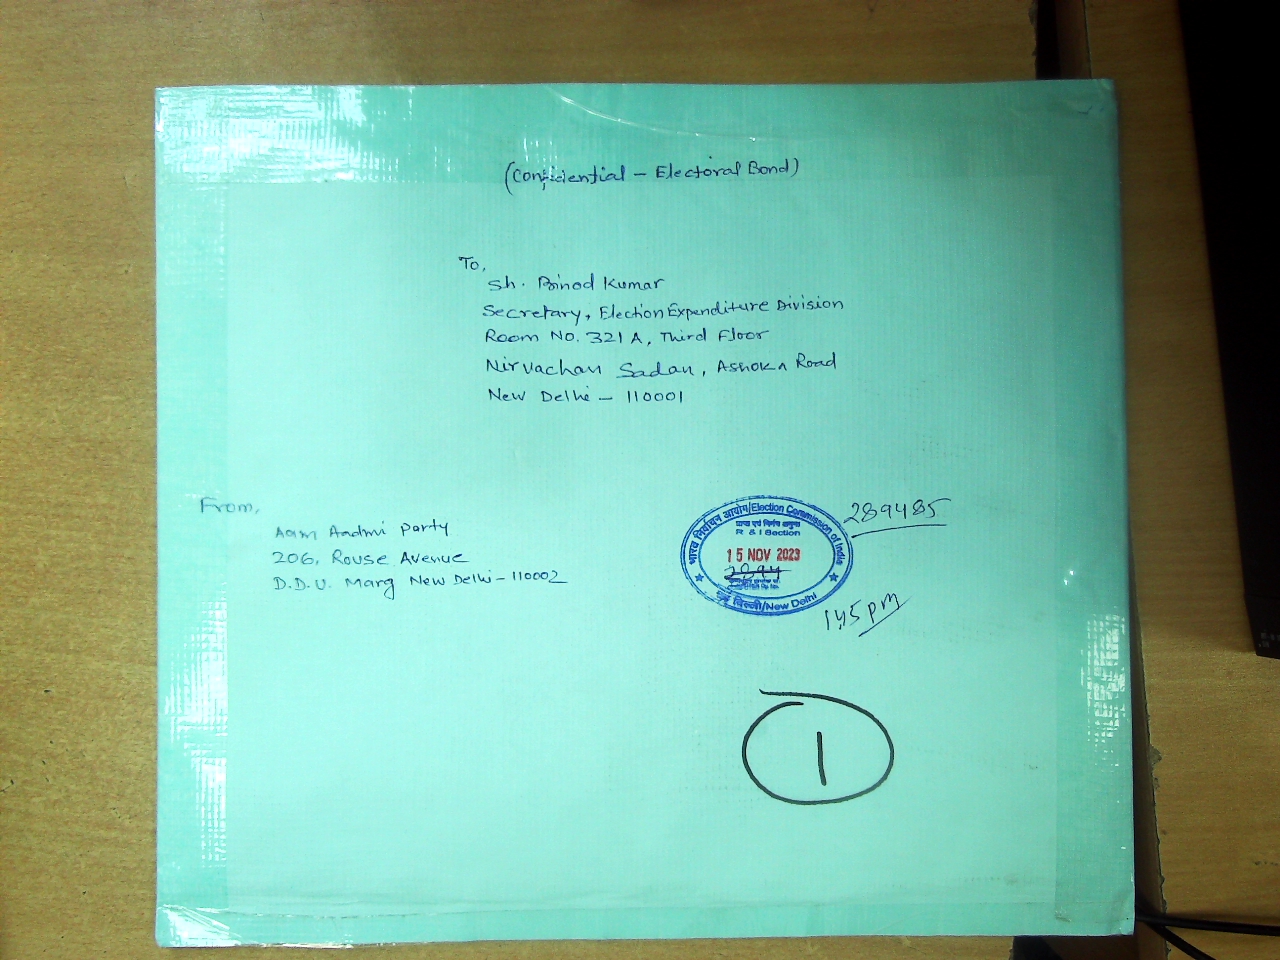 (Confidential - Electoral Bond)
To,
Sh. Binod Kumar
Secretary, Election Expenditure Division
Room No. 321 A, Third Floor
Nirvachan Sadan, Ashoka Road
New Delhi - 110001
From,
Aam Aadmi Party
206, Rouse Avenue
D.D.U. Marg New Delhi - 110002
भारत निर्वाचन आयोग/Election Commission of India
R & I Section
15 NOV 2023
नई दिल्ली/New Delhi
289485
1